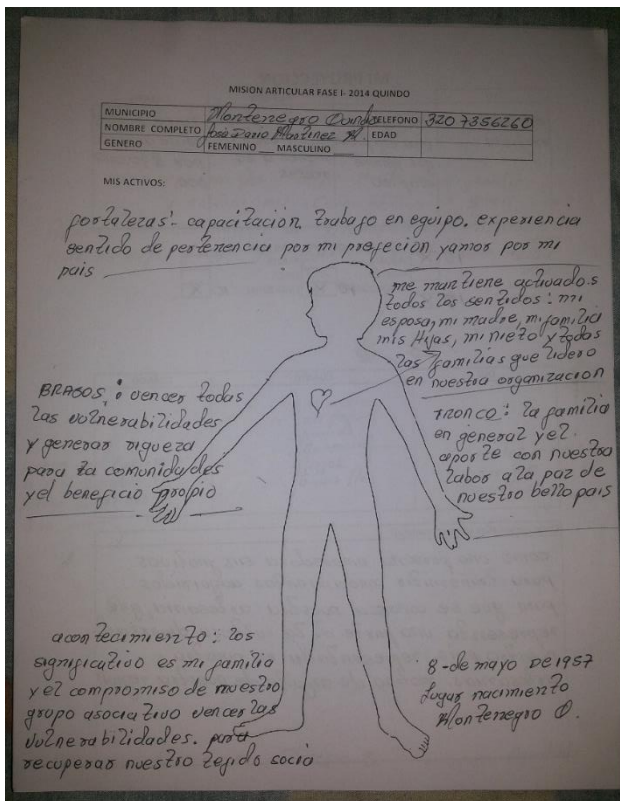 MISION ARTICULAR FASE I- 2014 QUINDO
MUNICIPIO Montenegro Quindio TELEFONO 3207356260
NOMBRE COMPLETO José Dario Martinez M EDAD
GENERO FEMENINO ___ MASCULINO ___
MIS ACTIVOS:
fortalezas:- capacitación. trabajo en eguipo. experiencia
sentido de pertenencia por mi profecion yamor por mi
pais
me mantiene activados
todos los sentidos: mi
esposa, mi madre, mi familia
mis Hijas, mi nieto y todas
las familias que lidero
en nuestra organizacion
BRASOS: vencer todas
las vulnerabilidades
y generar rigueza
para la comunidades
yel beneficio propio
TRONCO: la familia
en general yel
aporte con nuestra
labor ala paz de
nuestro bello pais
acontecimiento: los
significativo es mi familia
y el compromiso de nuestro
grupo asociativo vencer las
vulnerabilidades. para
recuperar nuestro tejido socia
8-de mayo DE 1957
Lugar nacimiento
Montenegro Q.